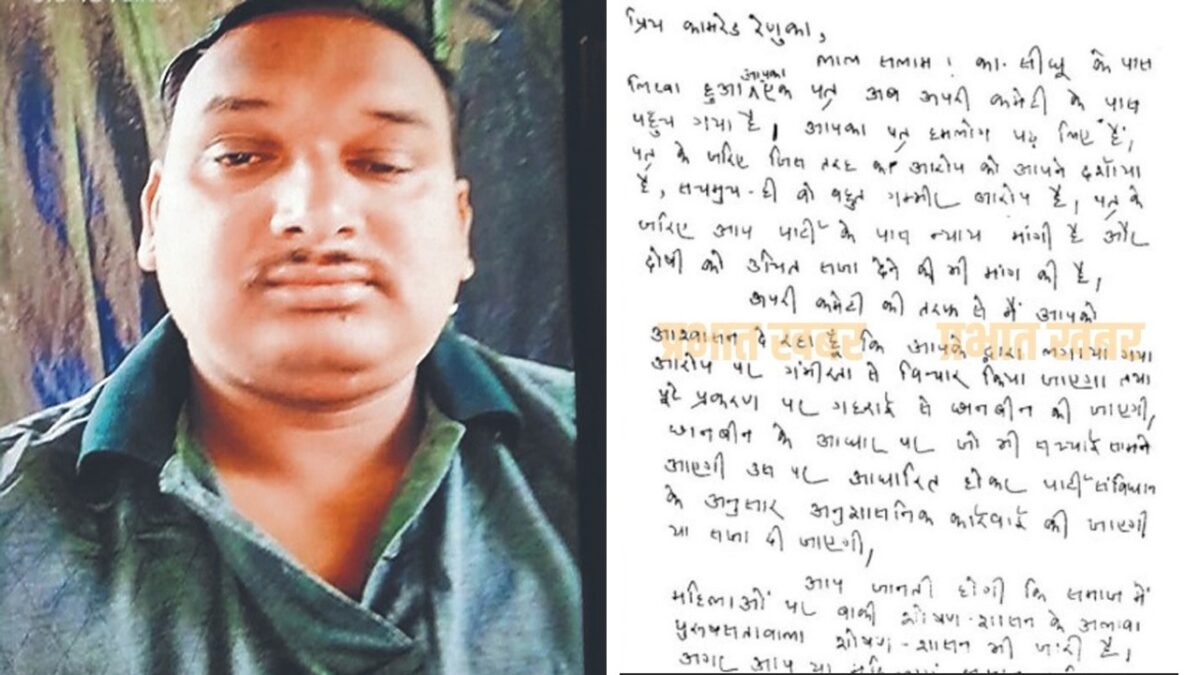 प्रिय कामरेड रेणुका,
लाल सलाम! का. सीधू के पास
आपका
लिखा हुआ एक पत्र अब अपरी कमेटी के पास
पहुंच गया है, आपका पत्र हमलोग पढ़ लिए हैं,
पत्र के जरिए जिस तरह का आरोप को आपने दर्शाया
है, सचमुच-ही वो बहुत गम्भीर आरोप है, पत्र के
जरिए आप पार्टी के पास न्याय मांगी है और
दोषी को उचित सजा देने की भी मांग की है,
अपरी कमेटी की तरफ से मैं आपको
आश्वासन दे रहा हूँ कि आपके द्वारा लगाया गया
प्रभात खबर प्रभात खबर
आरोप पर गंभीरता से विचार किया जाएगा तथा
पूरे प्रकरण पर गहराई से छानबीन की जाएगी,
छानबीन के आधार पर जो भी सच्चाई सामने
आएगी उस पर आधारित होकर पार्टी संविधान
के अनुसार अनुशासनिक कार्रवाई की जाएगी
या सजा दी जाएगी,
आप जानती होगी कि समाज में
महिलाओं पर बाकी शोषण-शासन के अलावा
पुरुषसत्तावाला शोषण-शासन भी जारी है,
अगर आप या